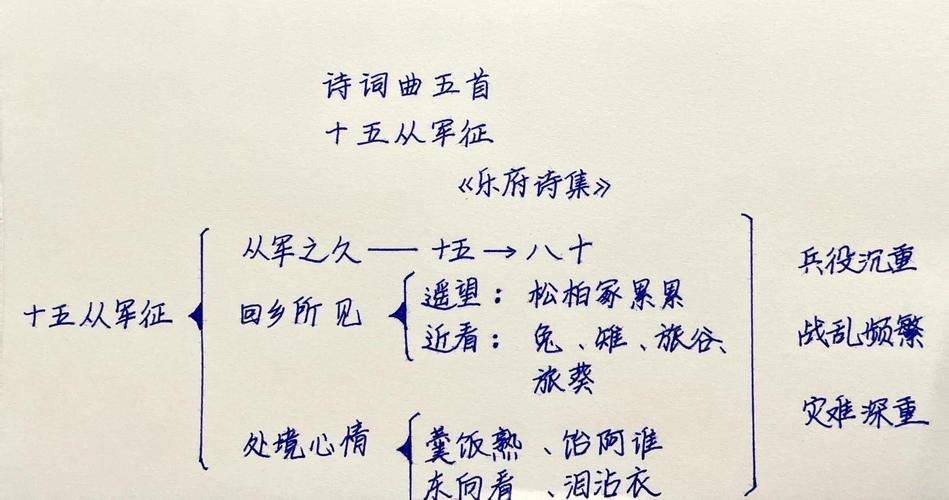 诗词曲五首
十五从军征
《乐府诗集》
十五从军征
从军之久——十五→八十
回乡所见
遥望：松柏冢累累
近看：兔、雉、旅谷、
旅葵
处境心情
羹饭熟、饴阿谁
东向看、泪沾衣
兵役沉重
战乱频繁
灾难深重